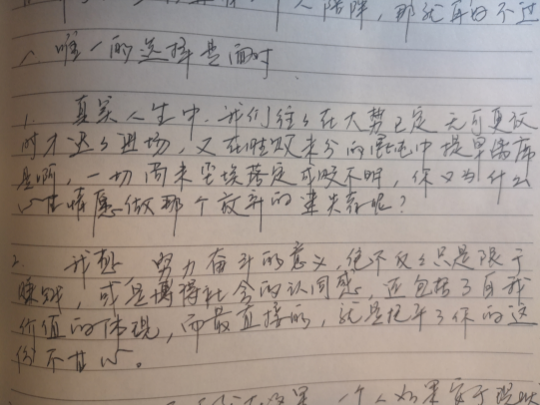 人陪伴,那就再好不过
唯一的选择是面对
1. 真实人生中,我们往往在大势已定无可更改
时才迟迟进场,又在胜败未分的混沌中提早离席
是啊,一切尚未尘埃落定或败不明,你又为什么
心甘情愿做那个放弃的失败者呢?
2. 我想 努力奋斗的意义,绝不仅仅只是限于
赚钱,或是博得社会的认同感,还包括了自我
价值的体现,而最直接的,就是抚平了你的这
份不甘心。
一个人如果安于现状